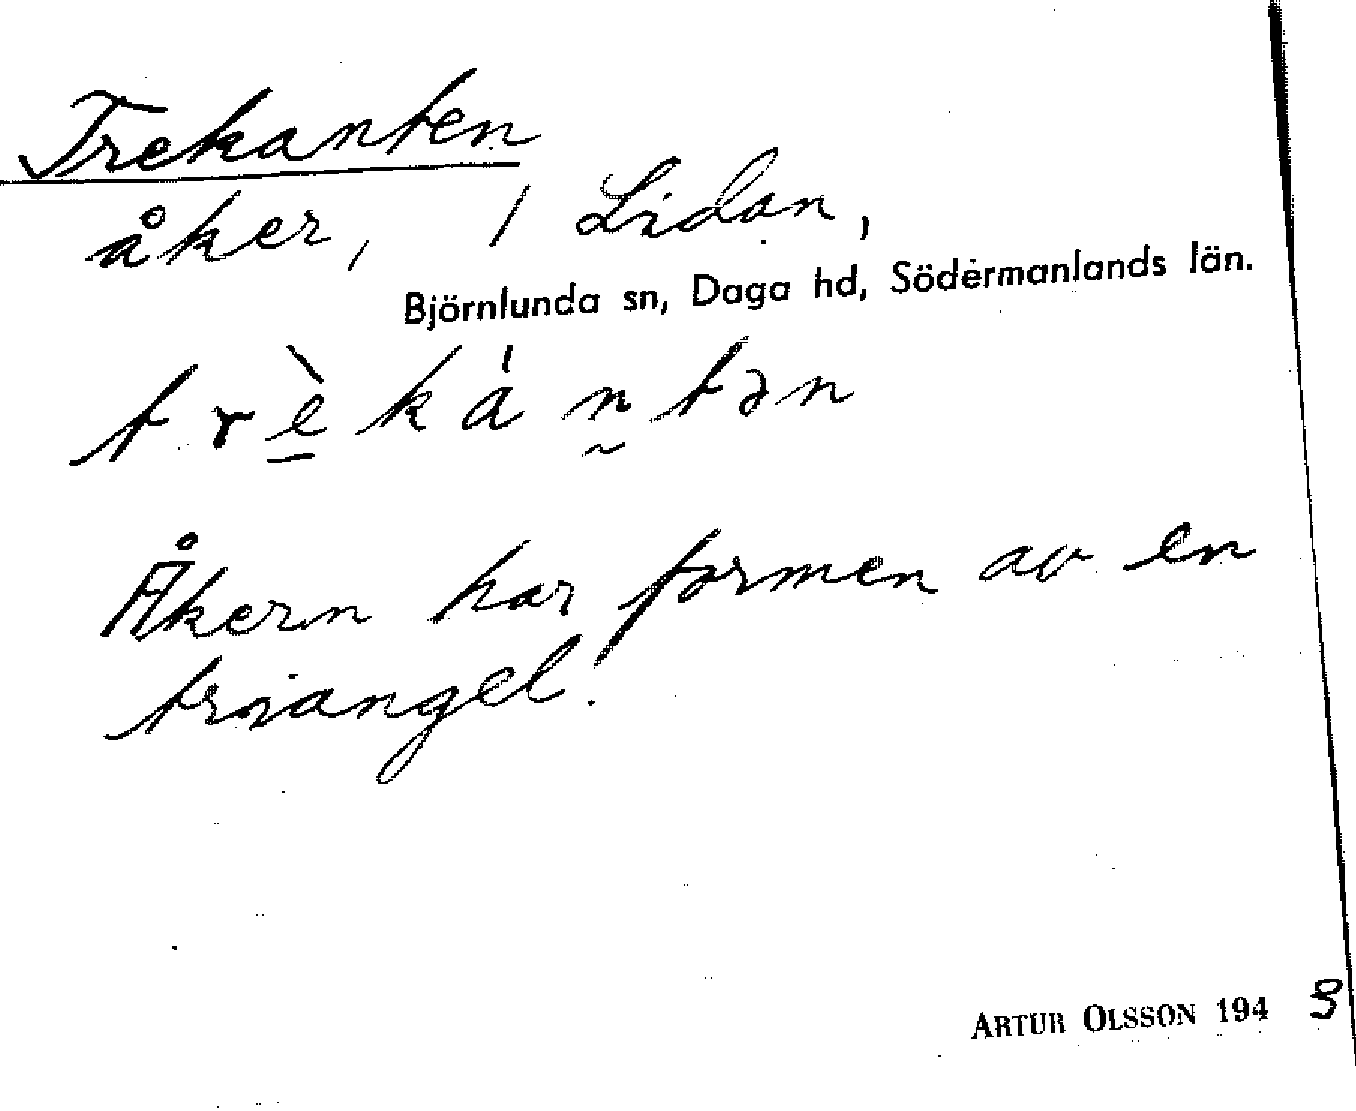 Trekanten
åker, / Lidan,
Björnlunda sn, Daga hd, Södermanlands län.
trè̠kán̰tən
Åkern har formen av en
triangel.
ARTUR OLSSON 194 3